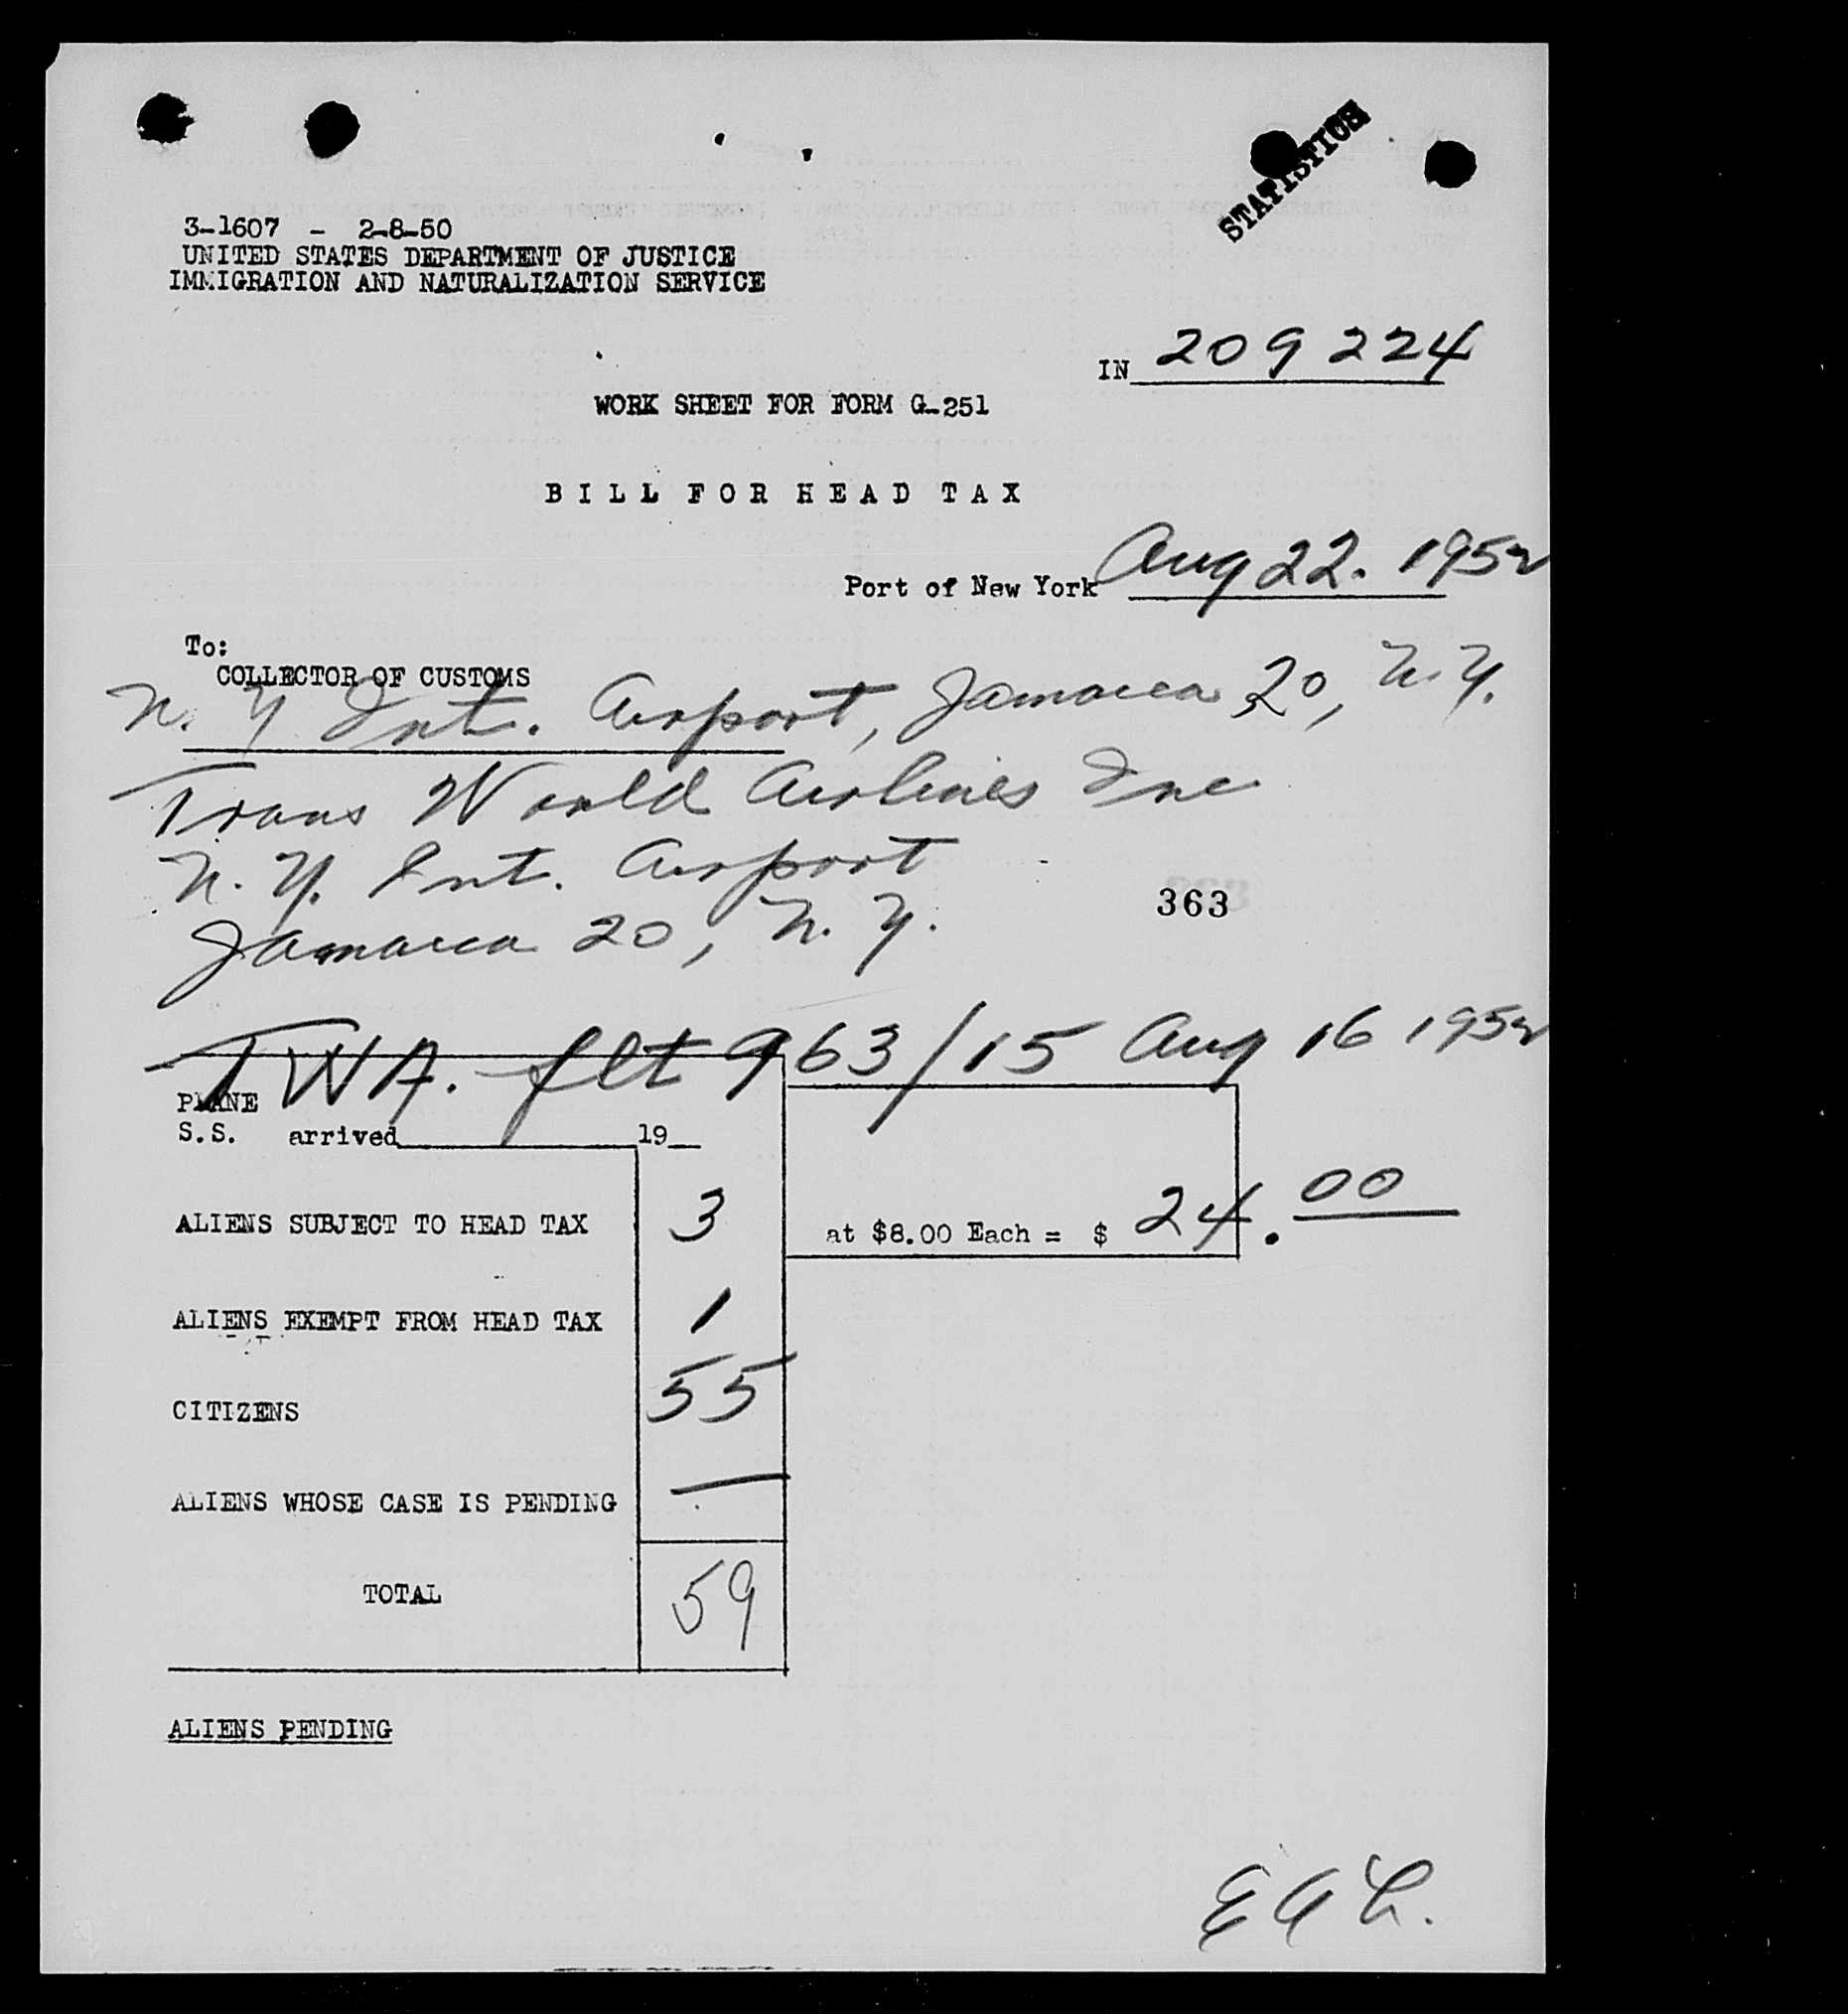 STATISTICS
3-1607 - 2-8-50
UNITED STATES DEPARTMENT OF JUSTICE
IMMIGRATION AND NATURALIZATION SERVICE
IN 209224
WORK SHEET FOR FORM G-251
BILL FOR HEAD TAX
Port of New York Aug 22. 1952
To:
COLLECTOR OF CUSTOMS
N. Y Int. Airport, Jamaica 20, N.Y.
Trans World Airlines Inc
N. Y. Int. Airport
363
Jamaica 20, N. Y.
TWA. flt 963/15 Aug 16 1952
PLANE
S.S. arrived 19
ALIENS SUBJECT TO HEAD TAX 3 at $8.00 Each = $ 24.00
ALIENS EXEMPT FROM HEAD TAX 1
CITIZENS 55
ALIENS WHOSE CASE IS PENDING —
TOTAL 59
ALIENS PENDING